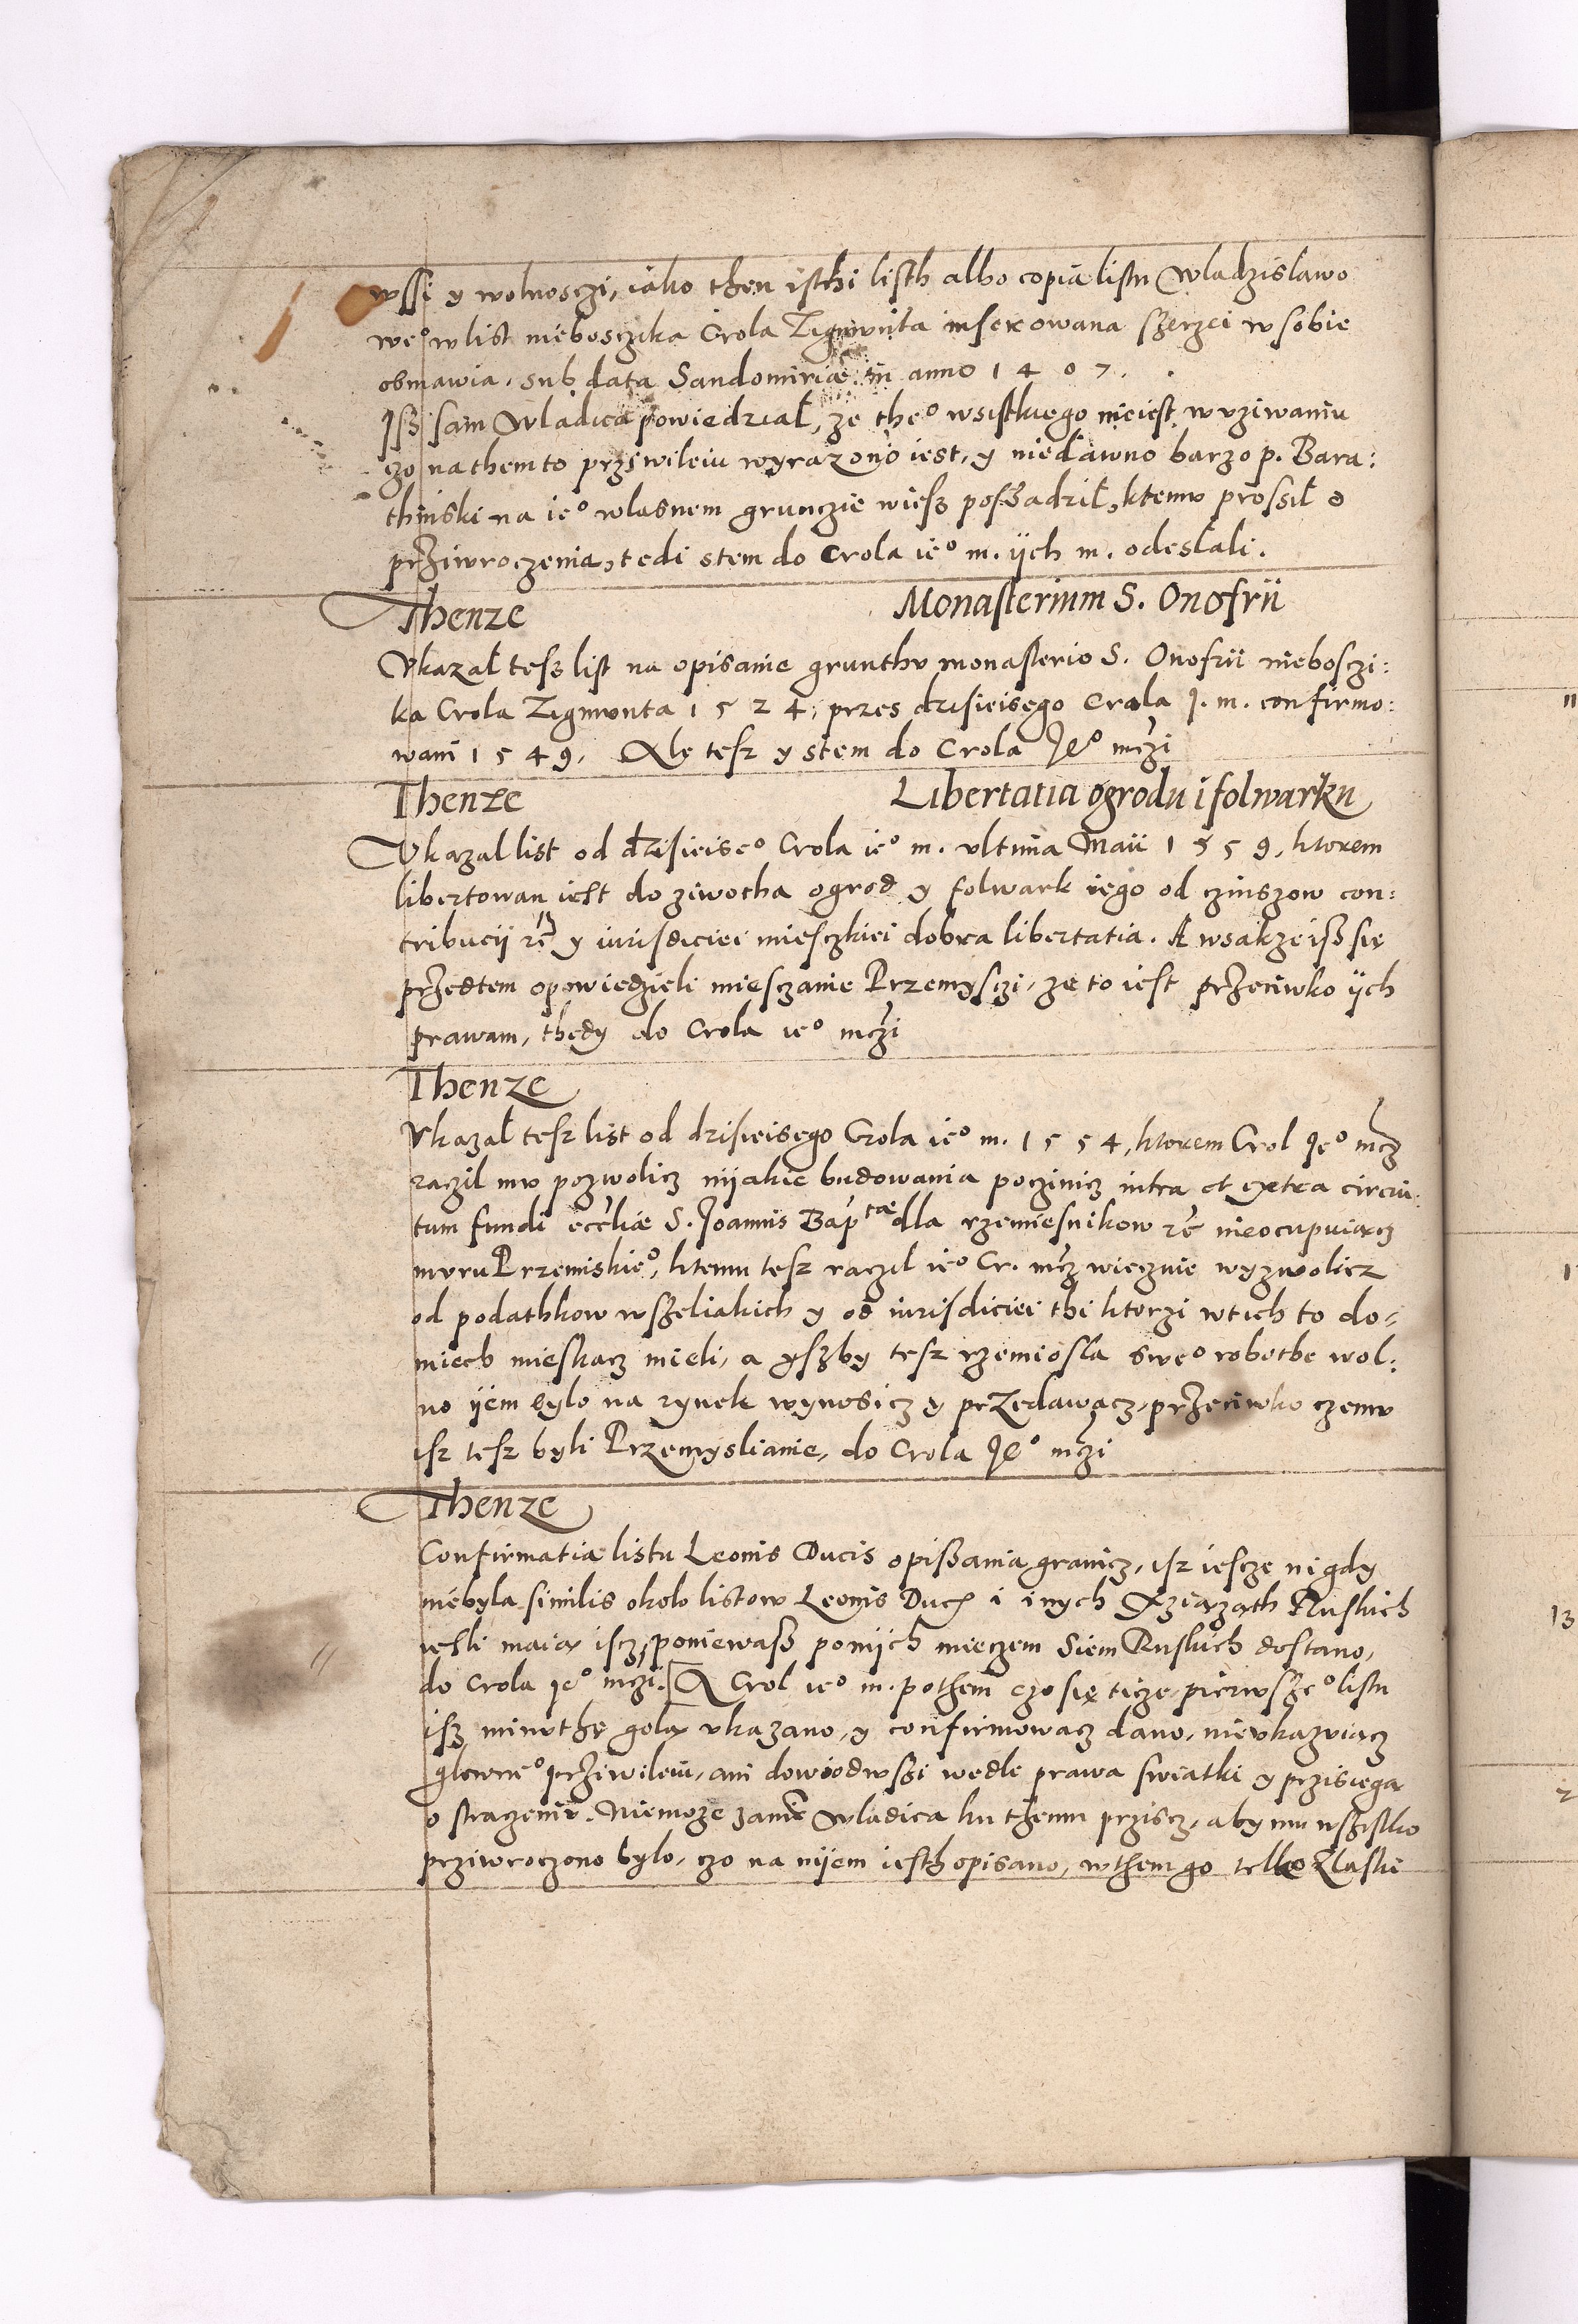 wssi y wolnosczi, iako then isthi listh albo copia listu Wladzislawo
we° w list nieboscżika Crola Zigmunta inserowana szerzei w sobie
obmawia, sub data Sandomiriae in anno 1407.
Isz sam Wladica powiedział, że the° wsistkiego nieiest w vziwaniu
czo na them to prziwileiu wyrazono iest, y niedawno barzo p. Bara:
thinski na ie° wlasnem grunczie wiesz posszadził, ktemu prossił o
prziwroczenia, tedi stem do Crola ie° m. ijch m. odesłali.
Thenze
Monasterium S. Onofrii
Vkazał tesz list na opisanie grunthu monasterio S. Onofrii niebosczi:
ka Crola Zigmunta 1524, przes dzisieisego Crola J. m. confirmo:
wani 1549. Ale tesz y stem do Crola Je° mczi
Thenze
Libertatia ogrodu i folwarku
Vkazał list od dzisieise° Crola ie° m. vltima Maii 1559, ktorem
libertowan iest do ziwotha ogrod y folwark iego od czinszow con:
tribucij etc y iurisdiciei mieszkiei dobra libertatia. A wsakze isz się
przedtem opowiedzieli miesczanie Przemysczi, ze to iest przeciwko ijch
prawam, thedy do Crola ie° mczi
Thenze
Vkazał tesz list od dzisieisego Crola ie° m. 1554, ktorem Crol Je° mcz
raczil mu pozwolicz nijakie budowania poczinicz intra et extra circui:
tum fundi eccliae S. Joannis Baptae dla rzemiesnikow etc nieocupuiącz
muru Przemiskie°, ktemu tesz raczil ie° Cr. mcz wiecznie wyzwolicz
od podathkow wszeliakich y od iurisdiciei thi ktorzi w tich to do-
miech mieskacz mieli, a yszby tesz rzemiosla swe° robothe wol:
no ijem bylo na rynek wynosicz y przedawacz, przeciwko czemu
isz tesz byli Przemyslianie, do Crola Je° mczi
Thenze
Confirmatia listu Leonis Ducis opissania granicz, isz iescze nigdy
niebyla similis około listow Leonis Ducis i inych Xziążąth Ruskich
iesli maią iscz, poniewasz po nijch mieczem Siem Ruskich dostano,
do Crola ie° mczi. A Crol ie° m. pothem czo się ticze pierwsze° listu
isz minuthę gołą vkazano, y confirmowacz dano, nievkazuiącz
glowne° prziwileiu, ani dowiodwszi wedle prawa swiatki y przisięgą
o straczeniu. Niemoze zanie Wladica ku themu przisz, aby mu wszistko
prziwroczono bylo, czo na nijem iesth opisano, w them go telko Zlaski